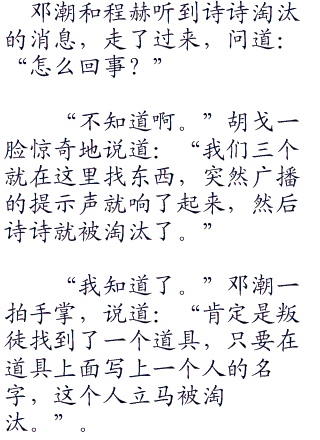 邓潮和程赫听到诗诗淘汰
的消息，走了过来，问道：
“怎么回事？”
“不知道啊。”胡戈一
脸惊奇地说道：“我们三个
就在这里找东西，突然广播
的提示声就响了起来，然后
诗诗就被淘汰了。”
“我知道了。”邓潮一
拍手掌，说道：“肯定是叛
徒找到了一个道具，只要在
道具上面写上一个人的名
字，这个人立马被淘
汰。”。